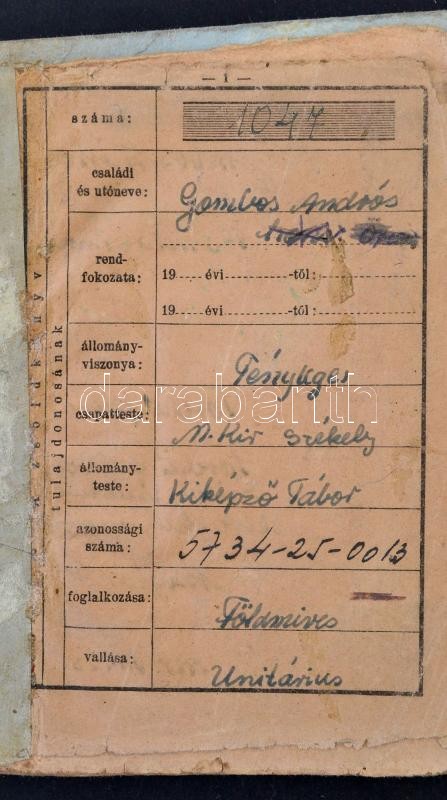 — 1 —
száma: 1047
családi
és utóneve: Gombos András
rend-
fokozata:
19 évi -től:
19 évi -től:
állomány-
viszonya: Tényleges
csapatteste: M. Kir Székely
állomány-
teste: Kiképző Tábor
azonossági
száma: 5734-25-0013
foglalkozása: Földmives
vallása: Unitárius
A zsoldkönyv
tulajdonosának
darabanth